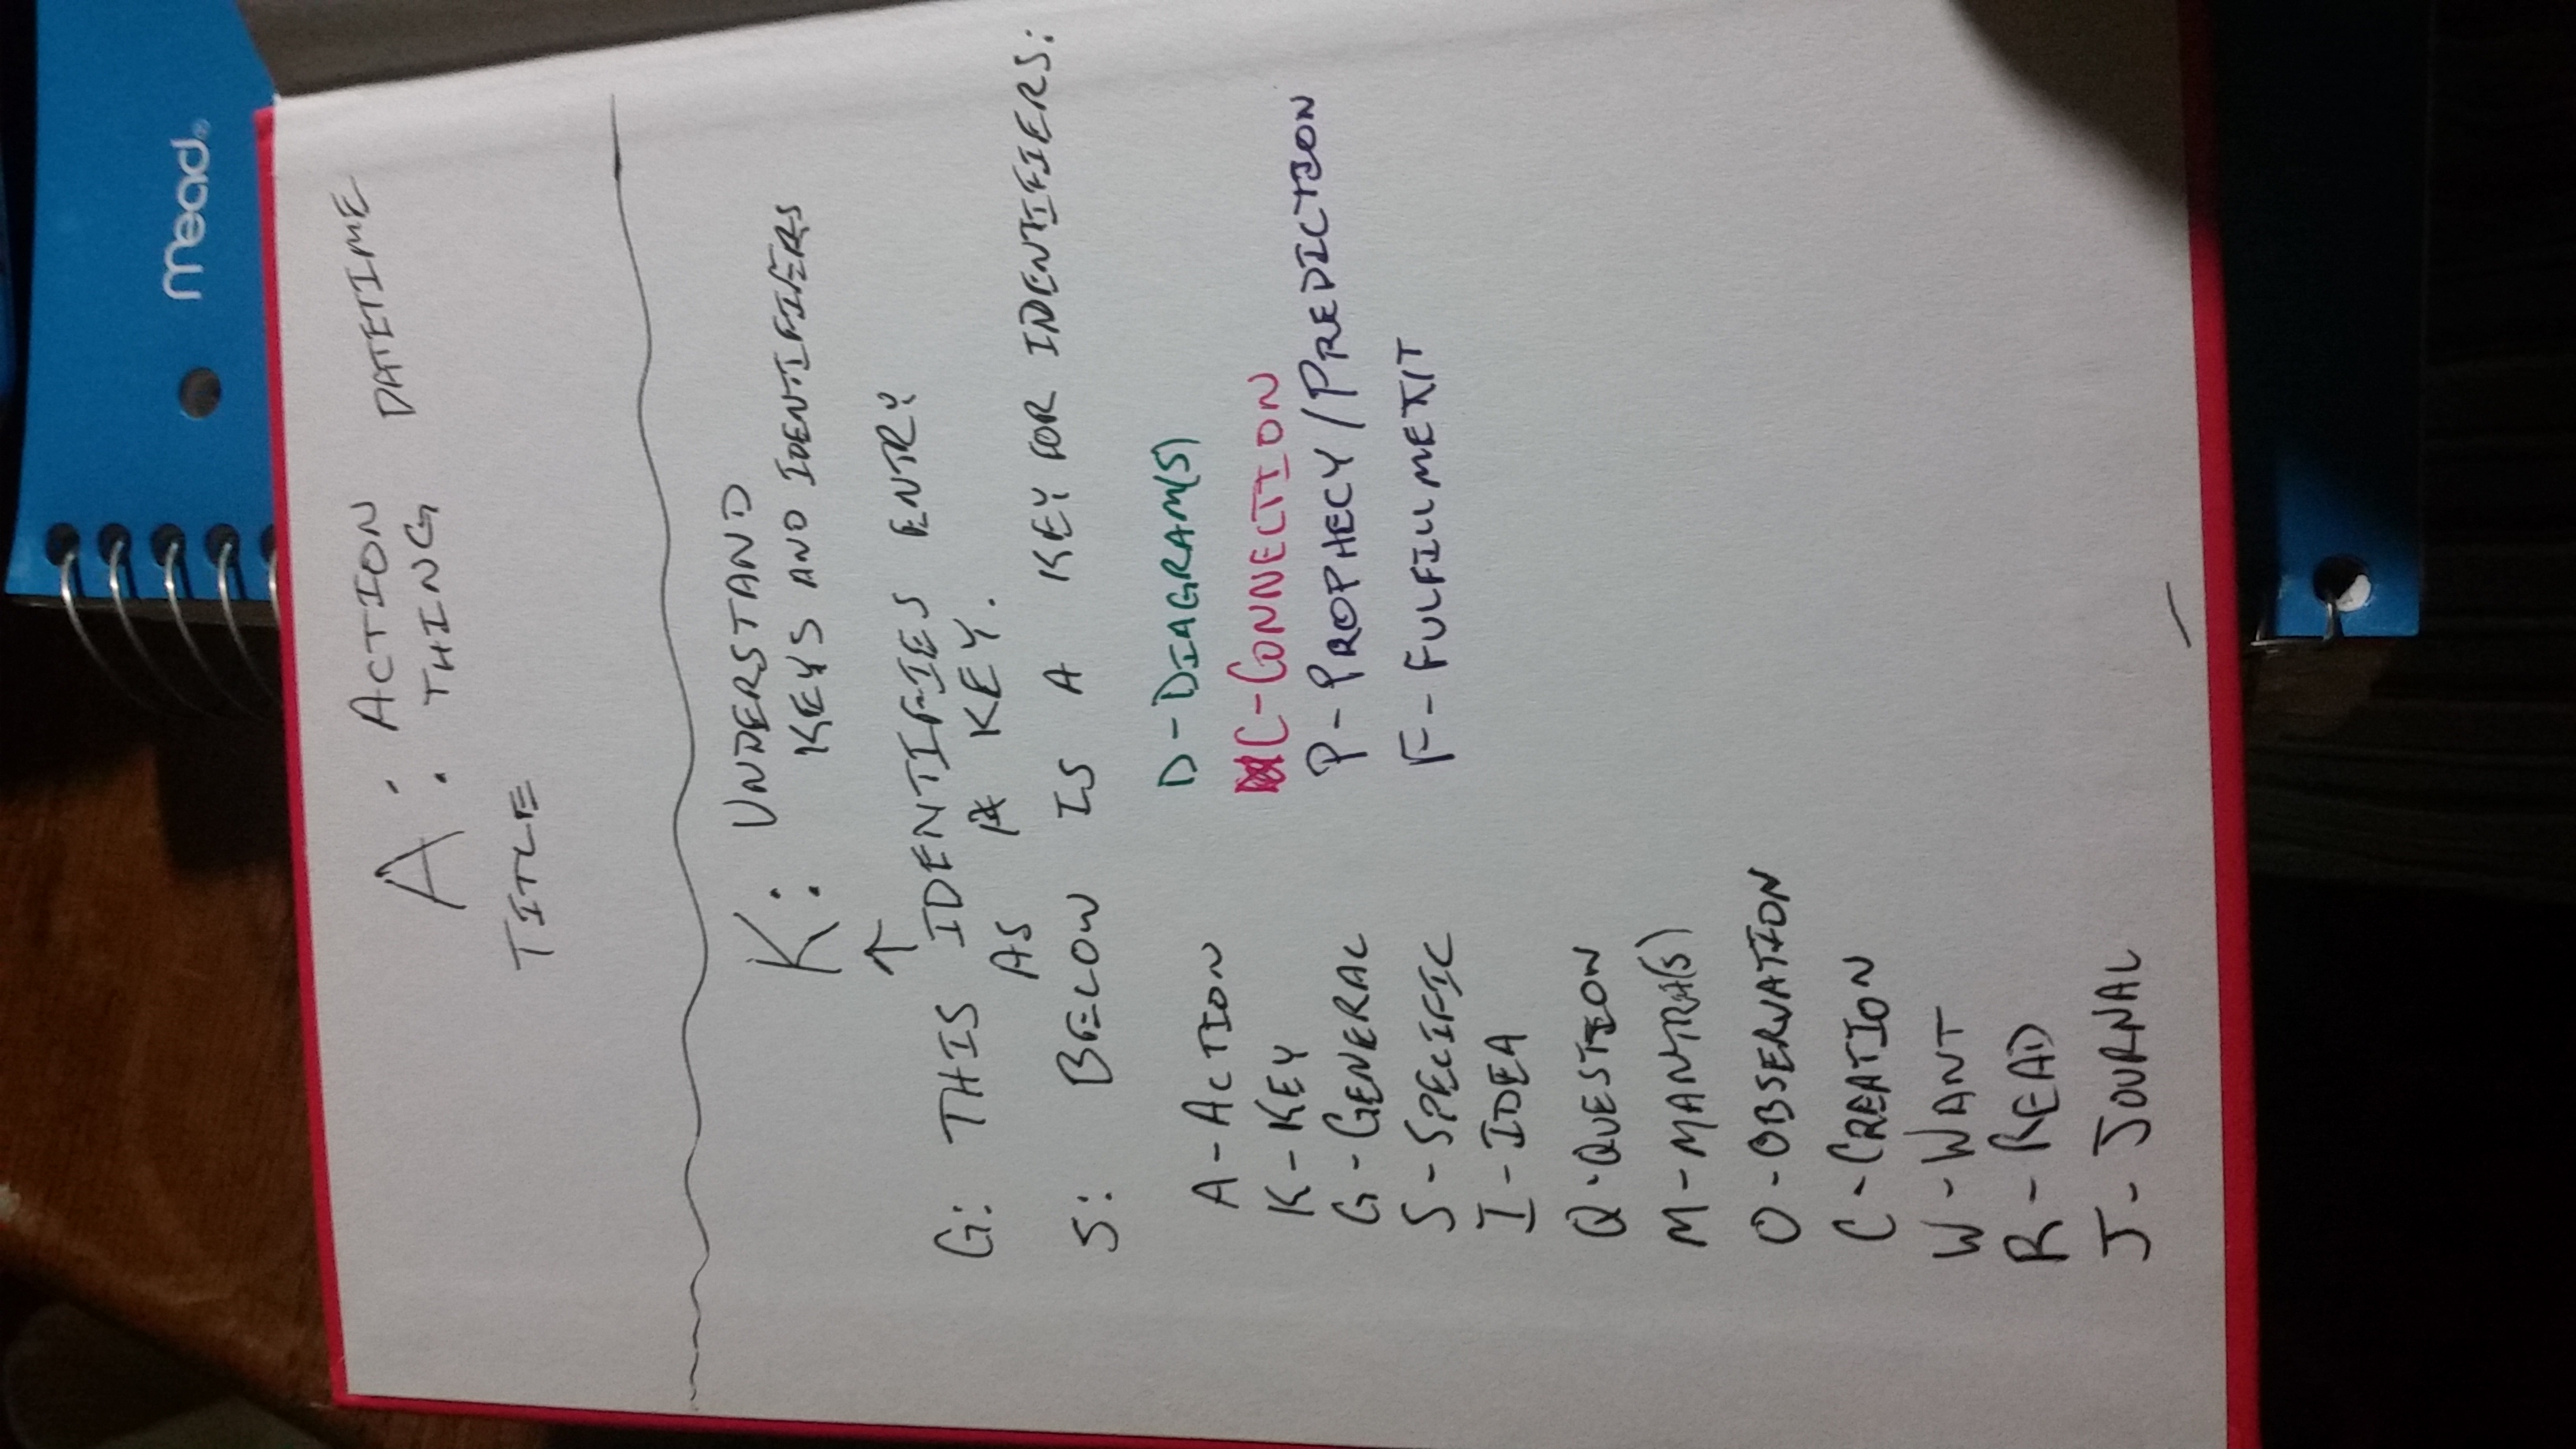 mead®
A: ACTION DATETIME
THING
TITLE
K: UNDERSTAND
KEYS AND IDENTIFIERS
↑
G: THIS IDENTIFIES ENTRY
AS A KEY.
S: BELOW IS A KEY FOR IDENTIFIERS:
A-ACTION
K-KEY
G-GENERAL
S-SPECIFIC
I-IDEA
Q-QUESTION
M-MANTRA(S)
O-OBSERVATION
C-CREATION
W-WANT
R-READ
J-JOURNAL
D-DIAGRAM(S)
C-CONNECTION
P-PROPHECY/PREDICTION
F-FULFILLMENT